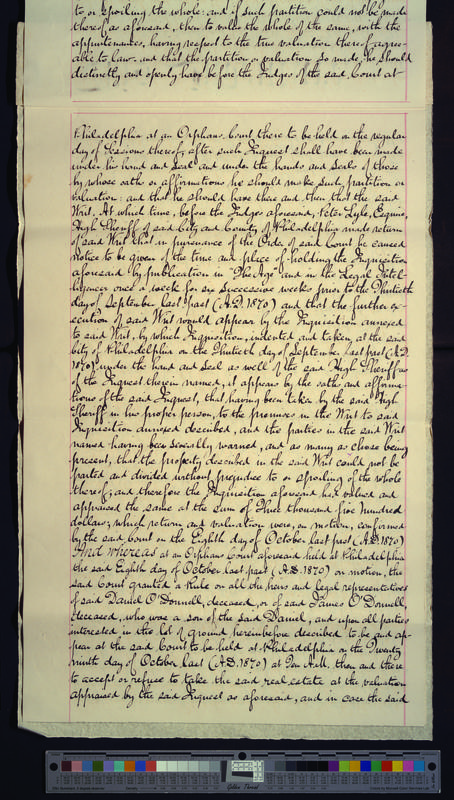 to or spoiling the whole: and if such partition could not be made
thereof as aforesaid, then to value the whole of the same, with the
appurtenances, having respect to the true valuation thereof agree-
able to law. and that the partition or valuation so made, he should
distinctly and openly have before the Judges of the said Court at
Philadelphia at an Orphans Court there to be held on the regular
day of Sessions thereof, after such Inquest shall have been made
under his hand and seal and under the hands and seals of those
by whose oaths or affirmations he should make such partition or
valuation: and that he should have there and then that the said
Writ. At which time, before the Judges aforesaid, Peter Lyle, Esquire,
High Sheriff of said City and County of Philadelphia made return
of said Writ that in pursuance of the Order of said Court he caused
notice to be given of the time and place of holding the Inquisition
aforesaid by publication in "The Age" and in the Legal Intel-
ligencer once a week for six successive weeks prior to the Thirtieth
day of September last past (A.D. 1870) and that the further ex-
ecution of said Writ would appear by the Inquisition annexed
to said Writ, by which Inquisition, indented and taken, at the said
City of Philadelphia on the Thirtieth day of September last past (A.D.
1870) under the hand and seal as well of the said High Sheriff as
of the Inquest therein named, it appears by the oaths and affirma-
tions of the said Inquest, that having been taken by the said High
Sheriff in his proper person, to the premises in the Writ to said
Inquisition annexed described, and the parties in the said Writ
named having been severally warned, and as many as chose being
present, that the property described in the said Writ could not be
parted and divided without prejudice to or spoiling of the whole
thereof; and therefore the Inquisition aforesaid had valued and
appraised the same at the sum of Three thousand five hundred
dollars; which return and valuation were, on motion, confirmed
by the said Court on the Eighth day of October last past (A.D. 1870)
And whereas at an Orphans Court aforesaid held at Philadelphia
the said Eighth day of October last past (A.D. 1870) on motion, the
said Court granted a Rule on all the heirs and legal representatives
of said Daniel O'Donnell, deceased, or of said James O'Donnell,
deceased, who was a son of the said Daniel, and upon all parties
interested in the lot of ground hereinbefore described to be and ap-
pear at the said Court to be held at Philadelphia on the Twenty
ninth day of October last (A.D. 1870) at Ten A.M. then and there
to accept or refuse to take the said real estate at the valuation
appraised by the said Inquest as aforesaid, and in case the said